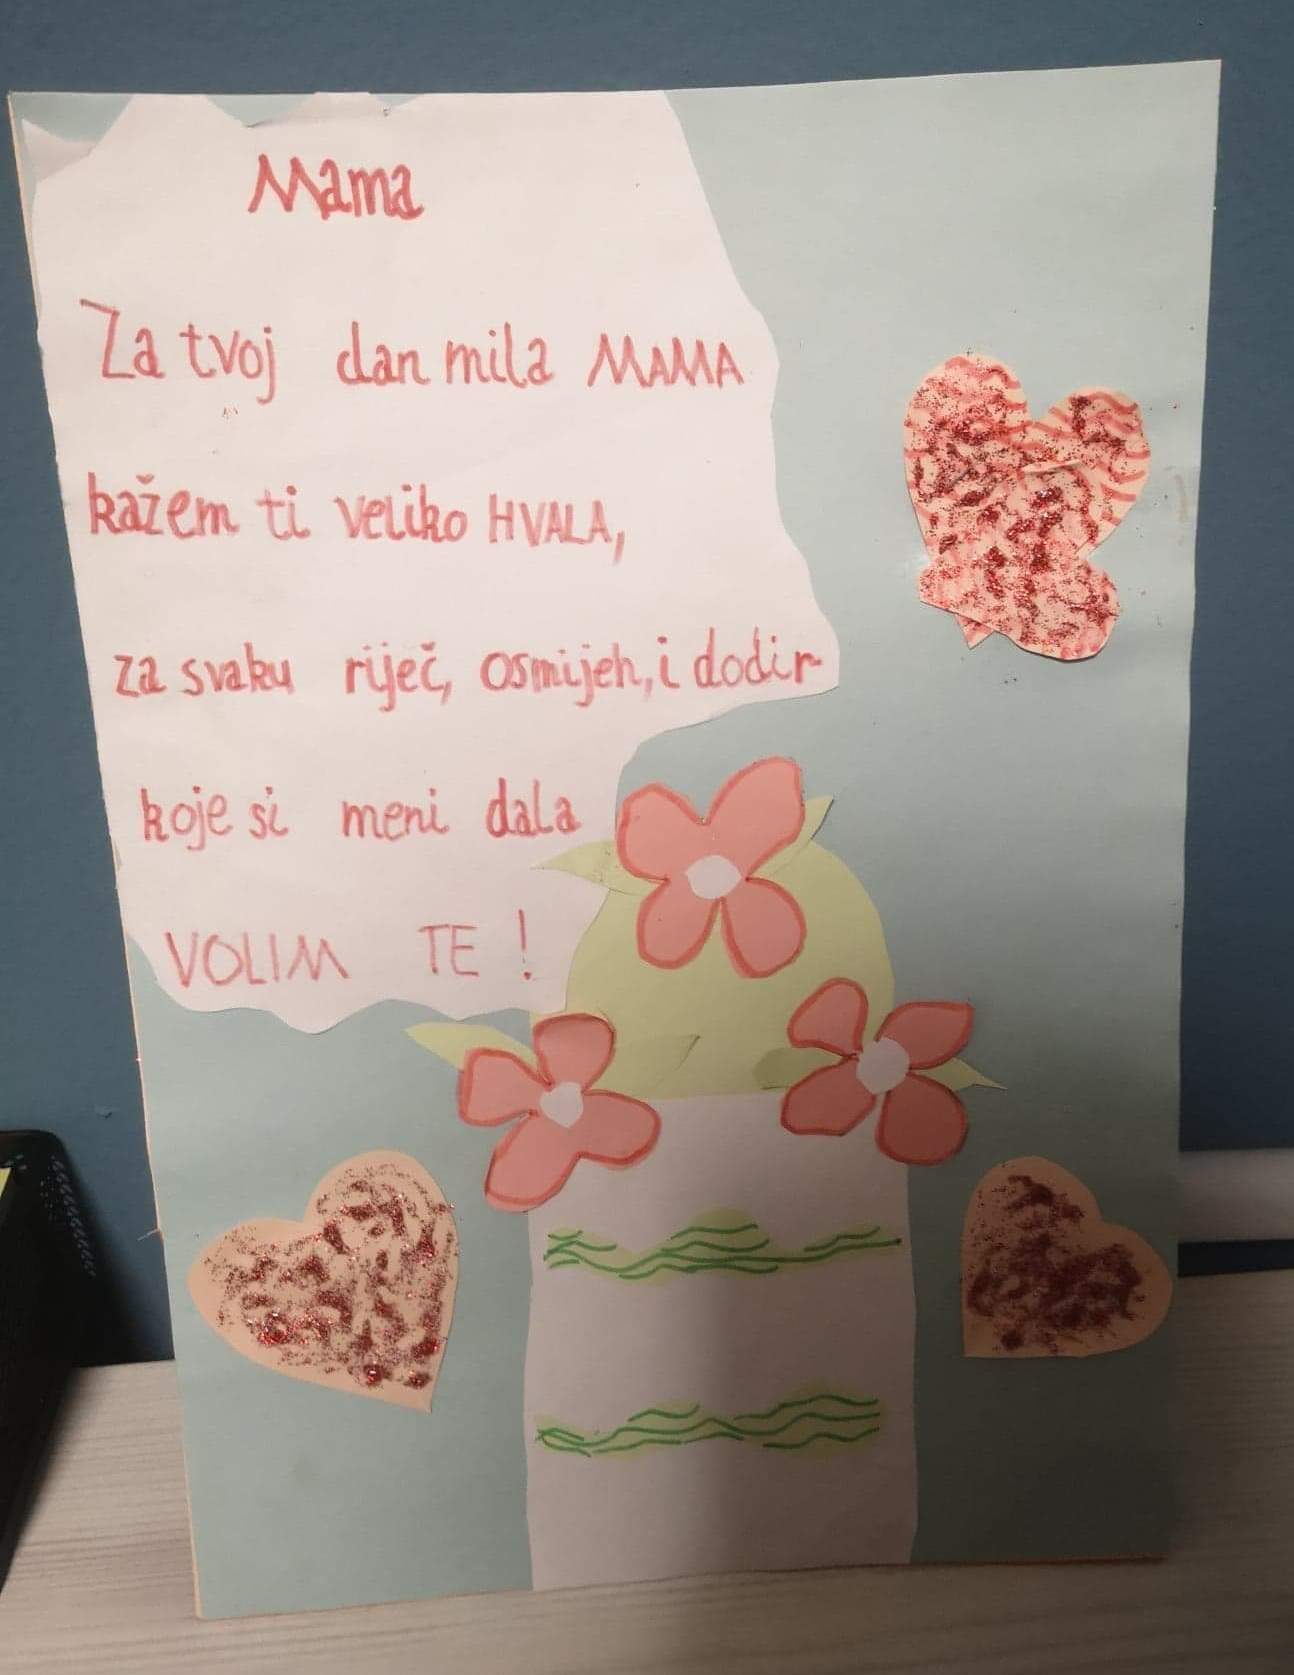 Mama
Za tvoj dan mila MAMA
kažem ti veliko HVALA,
za svaku riječ, osmijeh, i dodir
koje si meni dala
VOLIM TE!